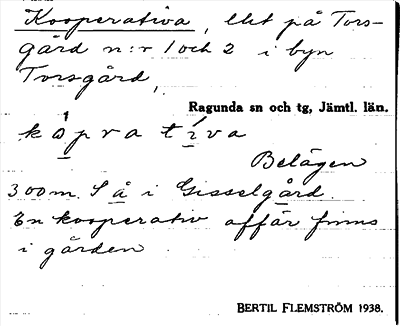 Kooperativa, lht på Tors-
gård n:r 1 och 2 i byn
Torsgård,
Ragunda sn och tg, Jämtl. län.
kòpratíva
Belägen
300 m. S å i Gisselgård.
En kooperativ affär finns
i gården.
BERTIL FLEMSTRÖM 1938.